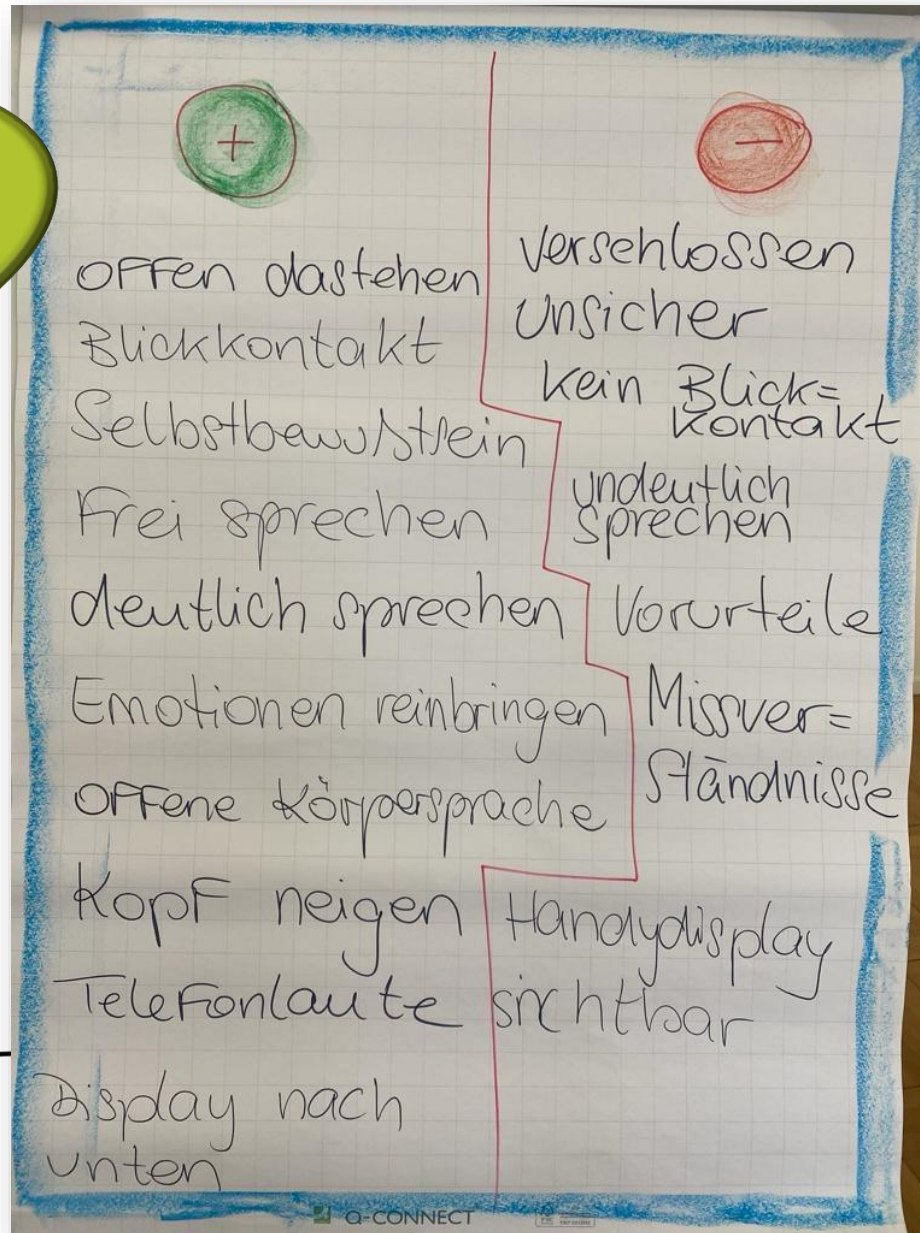 +
OFFen dastehen
Blickkontakt
Selbstbewusstsein
Frei sprechen
deutlich sprechen
Emotionen reinbringen
OFFene Körpersprache
KopF neigen
TeleFonlaute
Display nach
unten
-
Verschlossen
Unsicher
kein Blick=
kontakt
undeutlich
sprechen
Vorurteile
Missver=
ständnisse
Handydisplay
sichtbar
Q-CONNECT